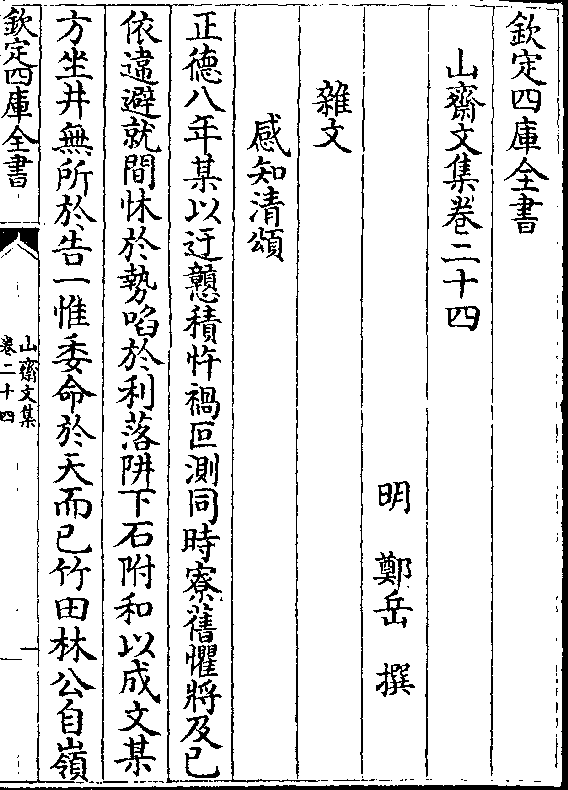 欽定四庫全書
山齋文集卷二十四
明 鄭岳 撰
雜文
感知清頌
正德八年某以迂戇積忤禍叵測同時寮舊懼將及已
依違避就間怵於勢啗於利落阱下石附和以成文某
方坐井無所於告一惟委命於天而已竹田林公自嶺
欽定四庫全書
山齋文集
卷二十四
一